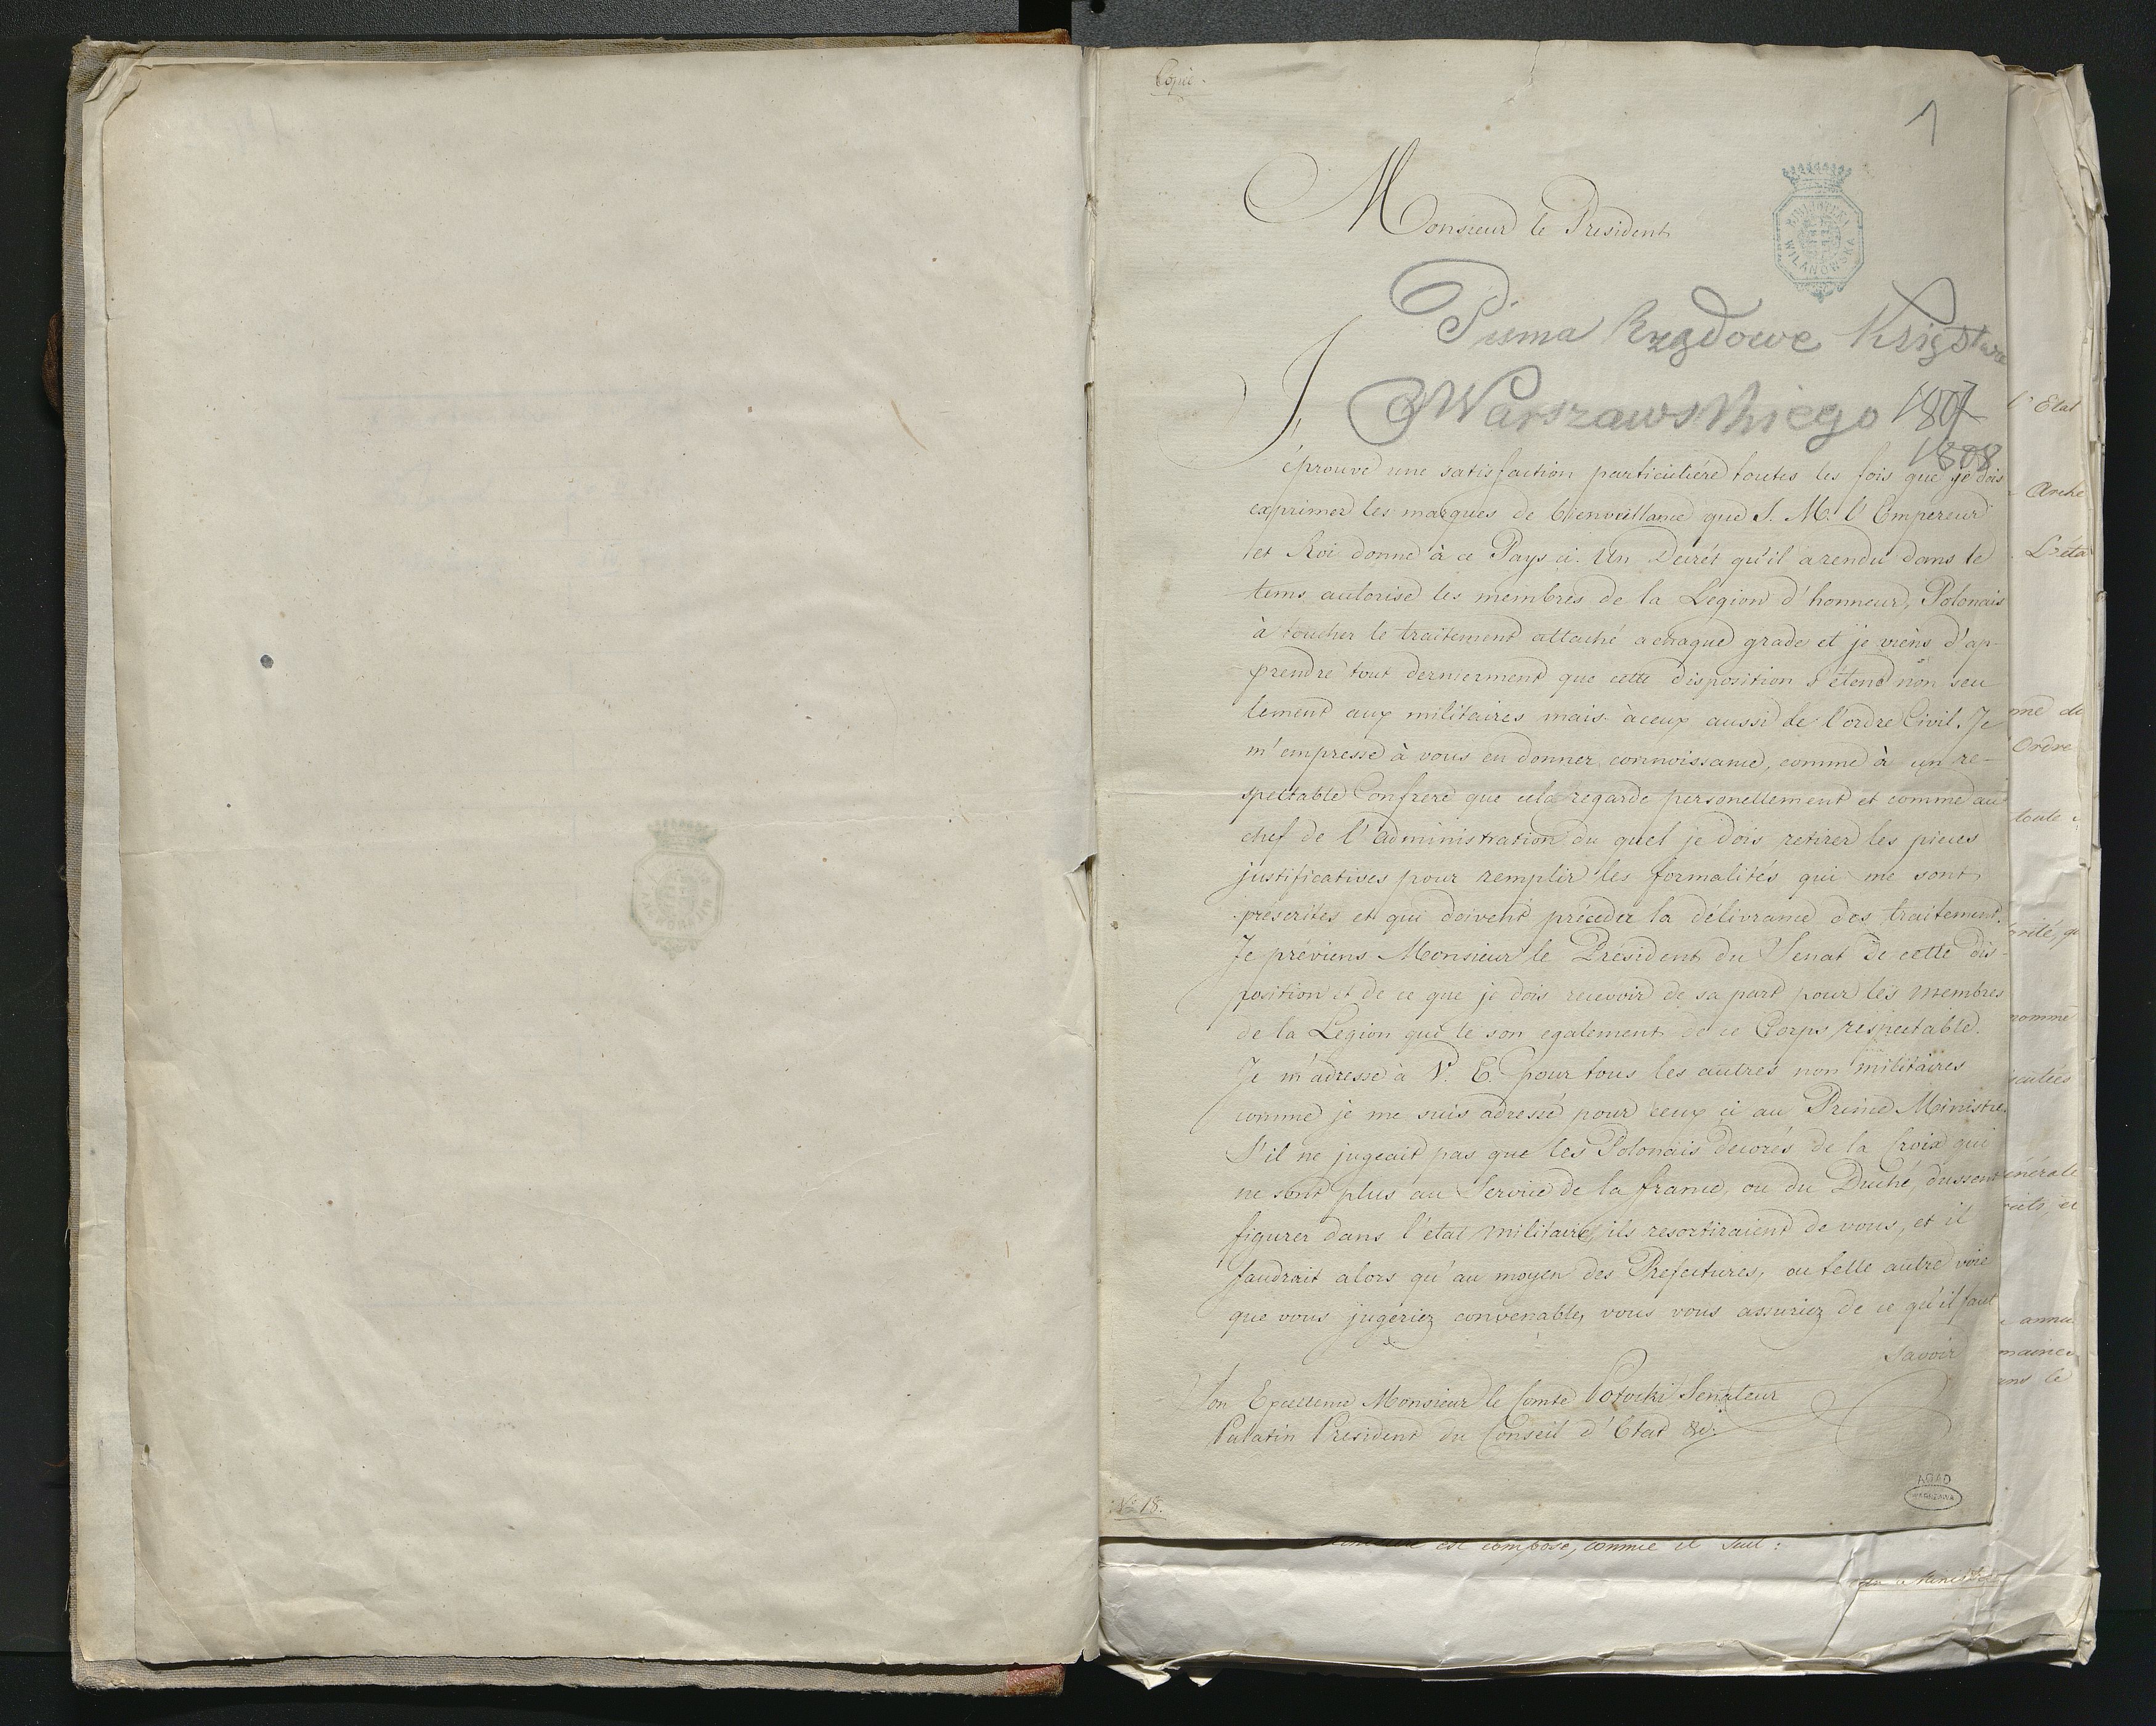 Copie.
1
Monsieur le President
BIBLIOTEKA WILANOWSKA
Pisma Rządowe Księstwa
Warszawskiego 1807
1808
J'
éprouve une satisfaction particuliére toutes les fois que je dois
exprimer les marques de bienveillance que S. M. l'Empereur
et Roi donne à ce Pays ci. Un Decrét qu'il a rendu dans le
tems autorise les membres de la Légion d'honneur, Polonais
à toucher le traitement attaché a chaque grade et je viens d'ap-
prendre tout dernierment que cette disposition s'étend non seu
lement aux militaires mais à ceux aussi de l'ordre Civil. Je
m'empresse à vous en donner connoissance, comme à un re-
spectable Confrere que cela regarde personellement et comme au
chef de l'administration du quel je dois retirer les pieces
justificatives pour remplir les formalités qui me sont
prescrites et qui doivent préceder la délivrance des traitement.
Je préviens Monsieur le Président du Senat de cette dis-
position et de ce que je dois recevoir de sa part pour les membres
de la Légion qui le son egalement de ce Corps respectable.
Je m'adresse à V. E. pour tous les autres non militaires
comme je me suis adressé pour ceux ci au Prince Ministre.
S'il ne jugeait pas que les Polonais decorés de la Croix qui
ne sont plus au Service de la france, ou du Duché, dussent
figurer dans l'etat militaire, ils resortiraient de vous, et il
faudrait alors qu'au moyen des Prefectures, ou telle autre voie
que vous jugeriez convenable, vous vous assuriez de ce qu'il faut
savoir
Son Excellence Monsieur le Comte Potocki Senateur
Palatin President du Conseil d'Etat &c.
AGAD
WARSZAWA
No 18.
est composé, comme il suit :
l'Etat
me de
Ordre
toute
nommé
énérale
ans le